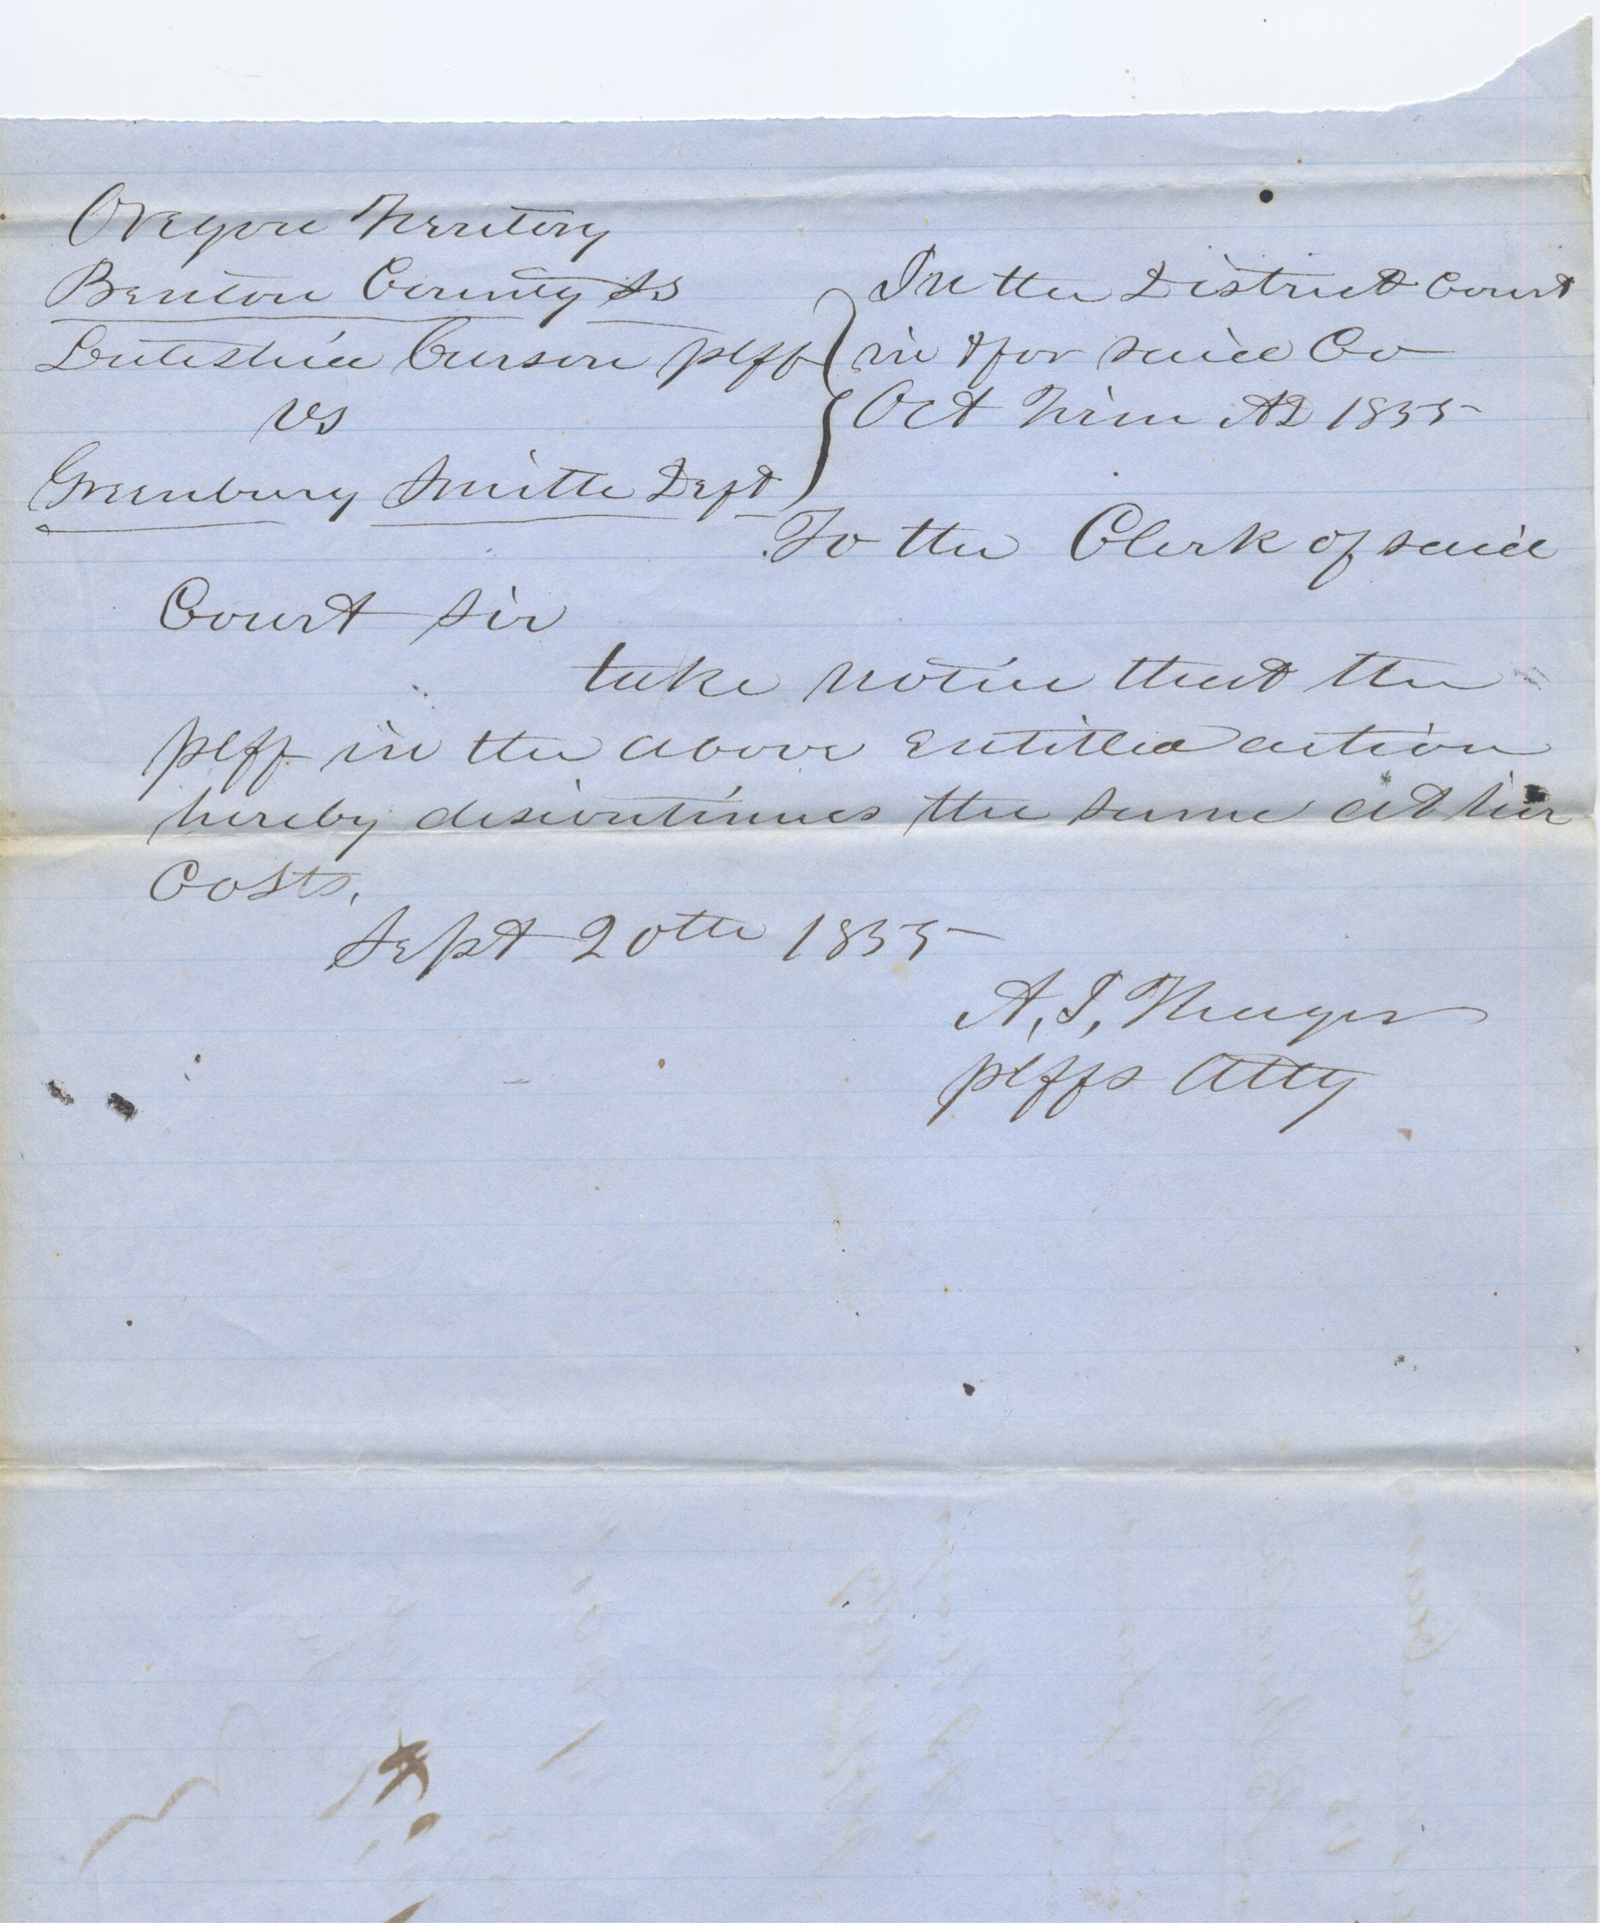 Oregon Territory
Benton County Ss
Letishia Carson plff
vs
Greenbury Smith Deft
In the District Court
in & for said Co
Oct Term AD 1855
To the Clerk of said
Court Sir
take notice that the
plff in the above entitled action
hereby discontinues the same at her
Costs.
Sept 20th 1855
A, J, Thayer
plffs Atty